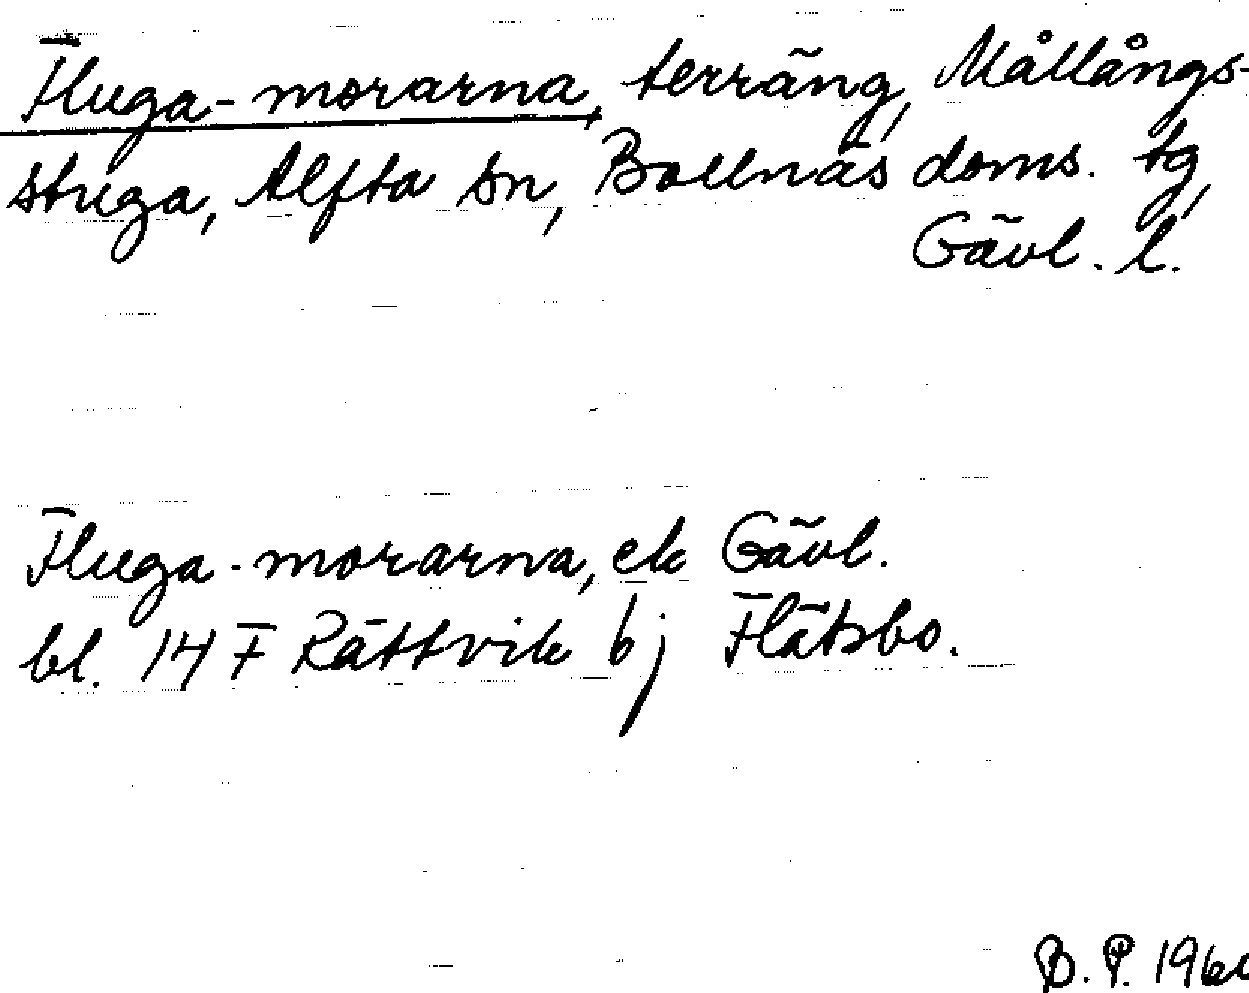 Fluga-morarna, terräng, Mållångs-
stuga, Alfta sn, Bollnäs doms. tg,
Gävl. l.
Fluga-morarna, ek Gävl.
bl. 14 F Rättvik bj Flätsbo.
B. P.